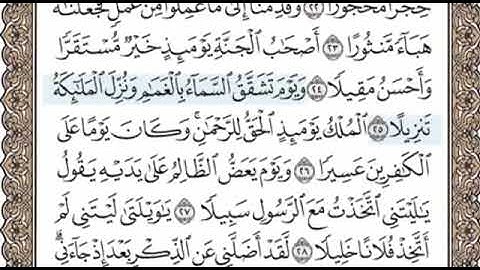 حِجْرًا مَّحْجُورًا ٢٢ وَقَدِمْنَا إِلَىٰ مَا عَمِلُوا۟ مِنْ عَمَلٍ فَجَعَلْنَٰهُ
هَبَآءً مَّنثُورًا ٢٣ أَصْحَٰبُ ٱلْجَنَّةِ يَوْمَئِذٍ خَيْرٌ مُّسْتَقَرًّا
وَأَحْسَنُ مَقِيلًا ٢٤ وَيَوْمَ تَشَقَّقُ ٱلسَّمَآءُ بِٱلْغَمَٰمِ وَنُزِّلَ ٱلْمَلَٰٓئِكَةُ
تَنزِيلًا ٢٥ ٱلْمُلْكُ يَوْمَئِذٍ ٱلْحَقُّ لِلرَّحْمَٰنِ ۚ وَكَانَ يَوْمًا عَلَى
ٱلْكَٰفِرِينَ عَسِيرًا ٢٦ وَيَوْمَ يَعَضُّ ٱلظَّالِمُ عَلَىٰ يَدَيْهِ يَقُولُ
يَٰلَيْتَنِى ٱتَّخَذْتُ مَعَ ٱلرَّسُولِ سَبِيلًا ٢٧ يَٰوَيْلَتَىٰ لَيْتَنِى لَمْ
أَتَّخِذْ فُلَانًا خَلِيلًا ٢٨ لَّقَدْ أَضَلَّنِى عَنِ ٱلذِّكْرِ بَعْدَ إِذْ جَآءَنِى ۗ